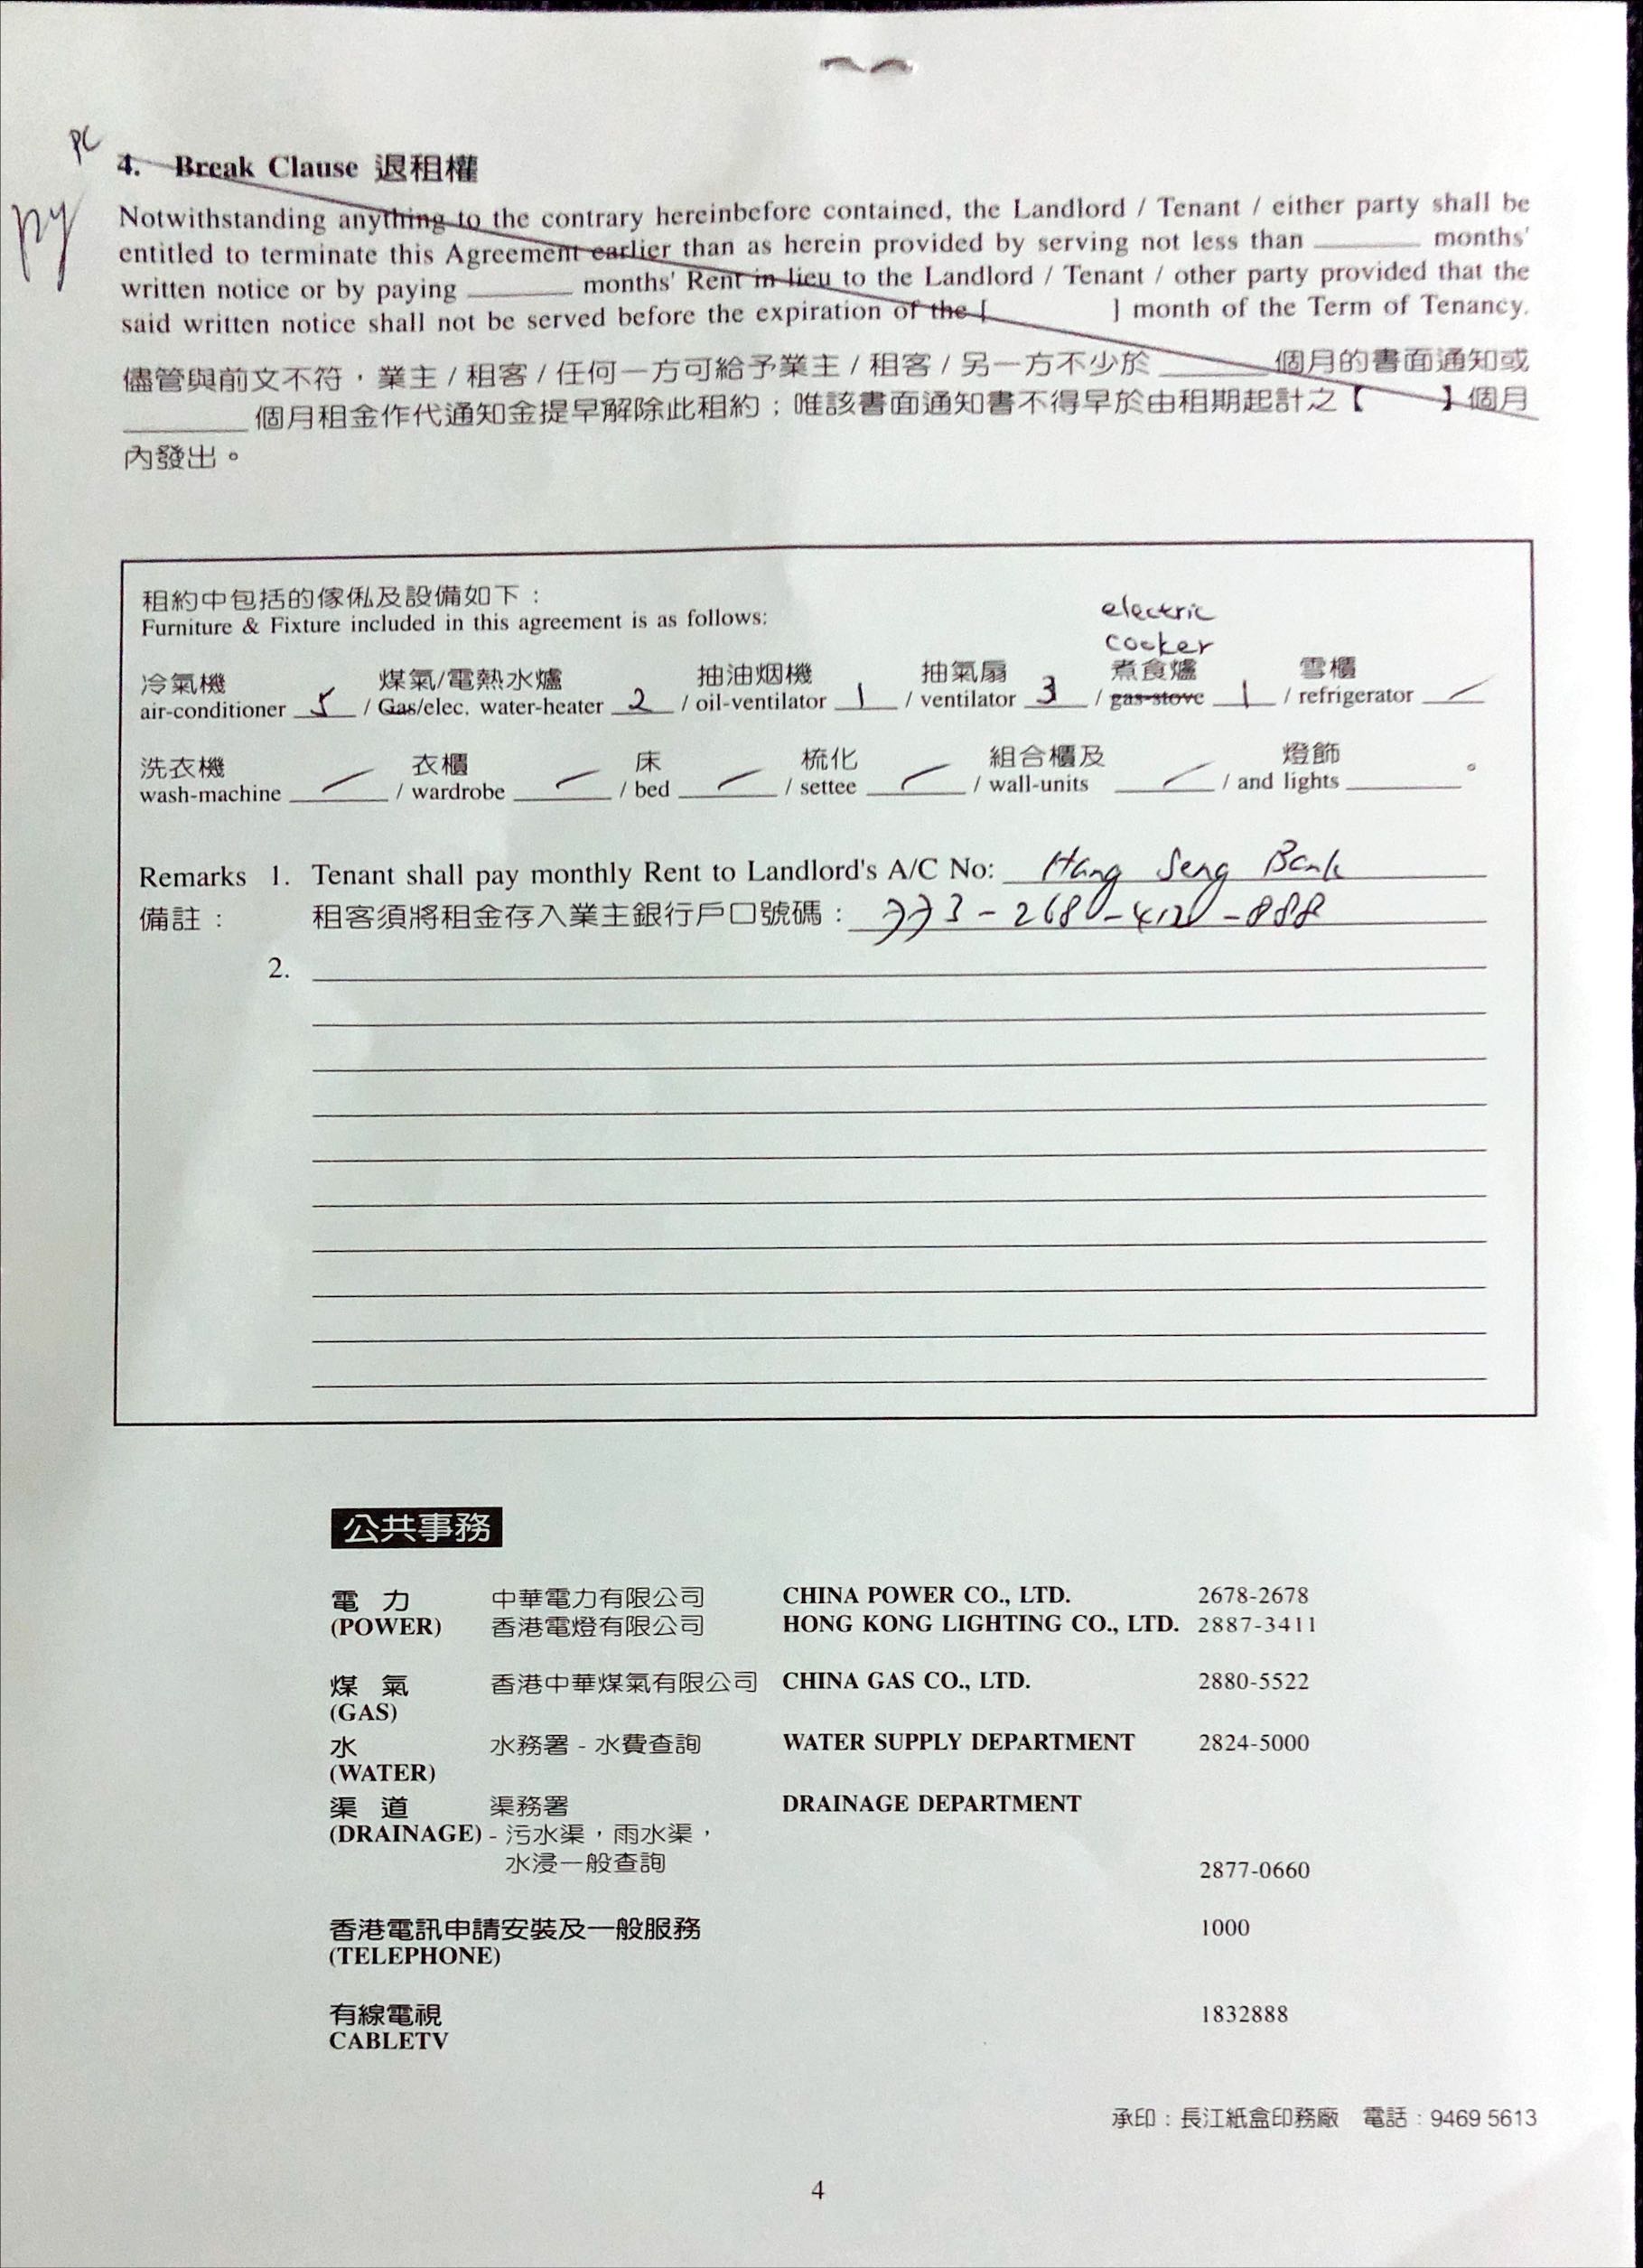 PC
4. Break Clause 退租權
Notwithstanding anything to the contrary hereinbefore contained, the Landlord / Tenant / either party shall be
entitled to terminate this Agreement earlier than as herein provided by serving not less than ________ months'
written notice or by paying ________ months' Rent in lieu to the Landlord / Tenant / other party provided that the
said written notice shall not be served before the expiration of the [ ] month of the Term of Tenancy.
儘管與前文不符，業主 / 租客 / 任何一方可給予業主 / 租客 / 另一方不少於 ________ 個月的書面通知或
________ 個月租金作代通知金提早解除此租約；唯該書面通知書不得早於由租期起計之【 】個月
內發出。
租約中包括的傢俬及設備如下：
Furniture & Fixture included in this agreement is as follows:
electric
cooker
冷氣機 煤氣/電熱水爐 抽油烟機 抽氣扇 煮食爐 雪櫃
air-conditioner 5 / Gas/elec. water-heater 2 / oil-ventilator 1 / ventilator 3 / gas-stove 1 / refrigerator
洗衣機 衣櫃 床 梳化 組合櫃及 燈飾
wash-machine / wardrobe / bed / settee / wall-units / and lights ________ 。
Remarks 1. Tenant shall pay monthly Rent to Landlord's A/C No: Hang Seng Bank
備註： 租客須將租金存入業主銀行戶口號碼： -888
2.
公共事務
電 力 中華電力有限公司 CHINA POWER CO., LTD. 2678-2678
(POWER) 香港電燈有限公司 HONG KONG LIGHTING CO., LTD. 2887-3411
煤 氣 香港中華煤氣有限公司 CHINA GAS CO., LTD. 2880-5522
(GAS)
水 水務署 - 水費查詢 WATER SUPPLY DEPARTMENT 2824-5000
(WATER)
渠 道 渠務署 DRAINAGE DEPARTMENT
(DRAINAGE) - 污水渠，雨水渠，
水浸一般查詢 2877-0660
香港電訊申請安裝及一般服務 1000
(TELEPHONE)
有線電視 1832888
CABLETV
承印：長江紙盒印務廠 電話：9469 5613
4